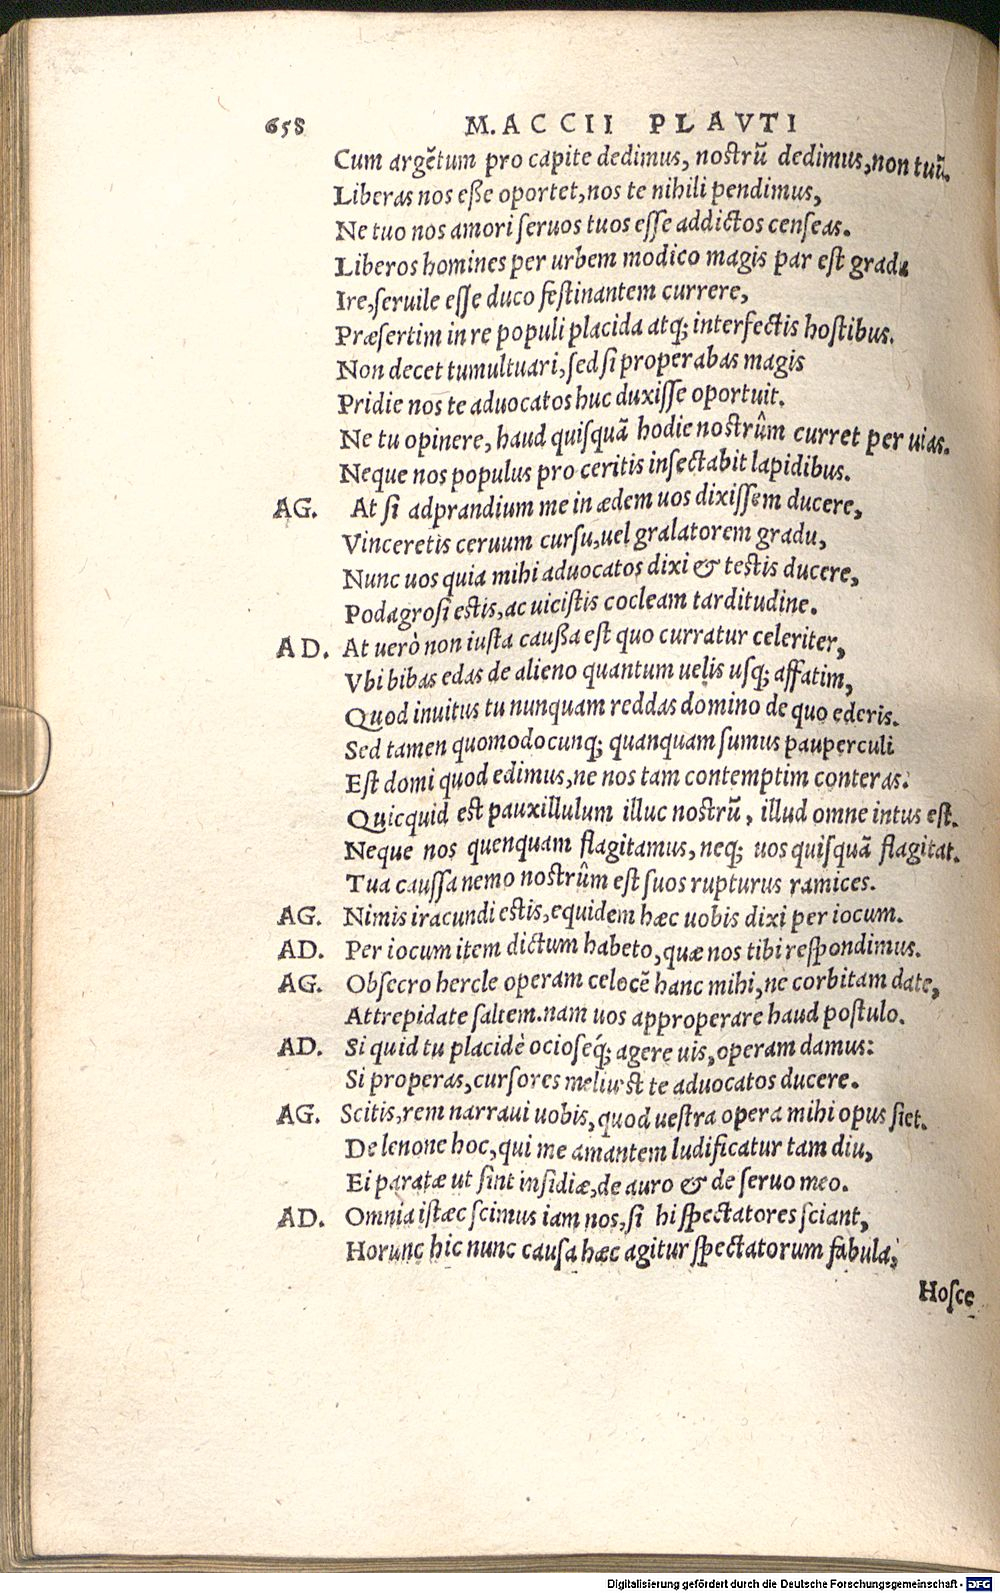 658 M. ACCII PLAVTI
Cum argẽtum pro capite dedimus, nostrũ dedimus, non tuũ.
Liberas nos eße oportet, nos te nihili pendimus,
Ne tuo nos amori ſeruos tuos eſſe addictos cenſeas.
Liberos homines per urbem modico magis par eſt gradu
Ire, ſeruile eſſe duco feſtinantem currere,
Præſertim in re populi placida atq; interfectis hoſtibus.
Non decet tumultuari, ſed ſi properabas magis
Pridie nos te aduocatos huc duxiſſe oportuit.
Ne tu opinere, haud quiſquã hodie noſtrûm curret per uias.
Neque nos populus pro ceritis inſectabit lapidibus.
AG. At ſi adprandium me in ædem uos dixiſſem ducere,
Vinceretis ceruum curſu, uel gralatorem gradu,
Nunc uos quia mihi aduocatos dixi & teſtis ducere,
Podagroſi eſtis, ac uiciſtis cocleam tarditudine.
AD. At uerò non iuſta caußa eſt quo curratur celeriter,
Vbi bibas edas de alieno quantum uelis uſq; affatim,
Quod inuitus tu nunquam reddas domino de quo ederis.
Sed tamen quomodocunq; quanquam ſumus pauperculi
Eſt domi quod edimus, ne nos tam contemptim conteras.
Quicquid eſt pauxillulum illuc noſtrũ, illud omne intus eſt.
Neque nos quenquam flagitamus, neq; uos quiſquã flagitat.
Tua cauſſa nemo noſtrûm eſt ſuos rupturus ramices.
AG. Nimis iracundi eſtis, equidem hæc uobis dixi per iocum.
AD. Per iocum item dictum habeto, quæ nos tibi reſpondimus.
AG. Obſecro hercle operam celocẽ hanc mihi, ne corbitam date,
Attrepidate ſaltem. nam uos approperare haud poſtulo.
AD. Si quid tu placidè ocioſeq́; agere uis, operam damus:
Si properas, curſores meliuſt te aduocatos ducere.
AG. Scitis, rem narraui uobis, quod ueſtra opera mihi opus ſiet.
De lenone hoc, qui me amantem ludificatur tam diu,
Ei paratæ ut ſint inſidiæ, de auro & de ſeruo meo.
AD. Omnia iſtæc ſcimus iam nos, ſi hi ſpectatores ſciant,
Horunc hic nunc cauſa hæc agitur ſpectatorum fabula,
Hoſce
Digitalisierung gefördert durch die Deutsche Forschungsgemeinschaft - DFG